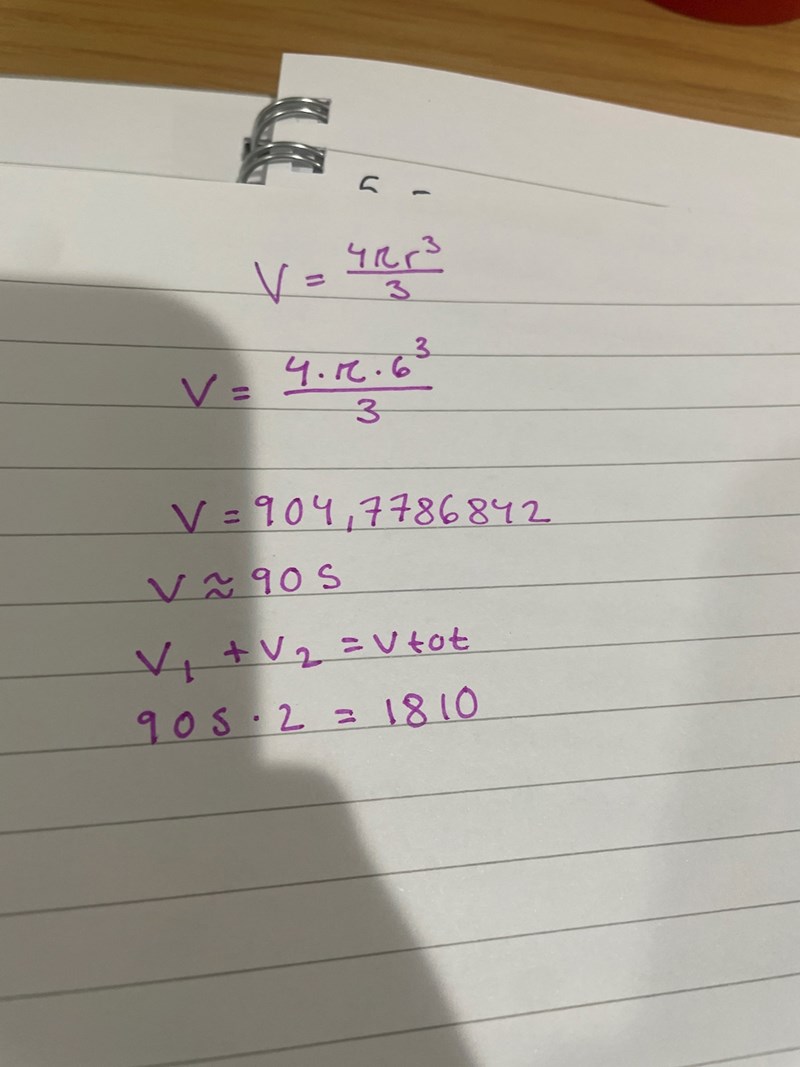 V = 4πr³/3
V = 4·π·6³/3
V = 904,7786842
V ≈ 905
V₁ + V₂ = Vtot
905·2 = 1810